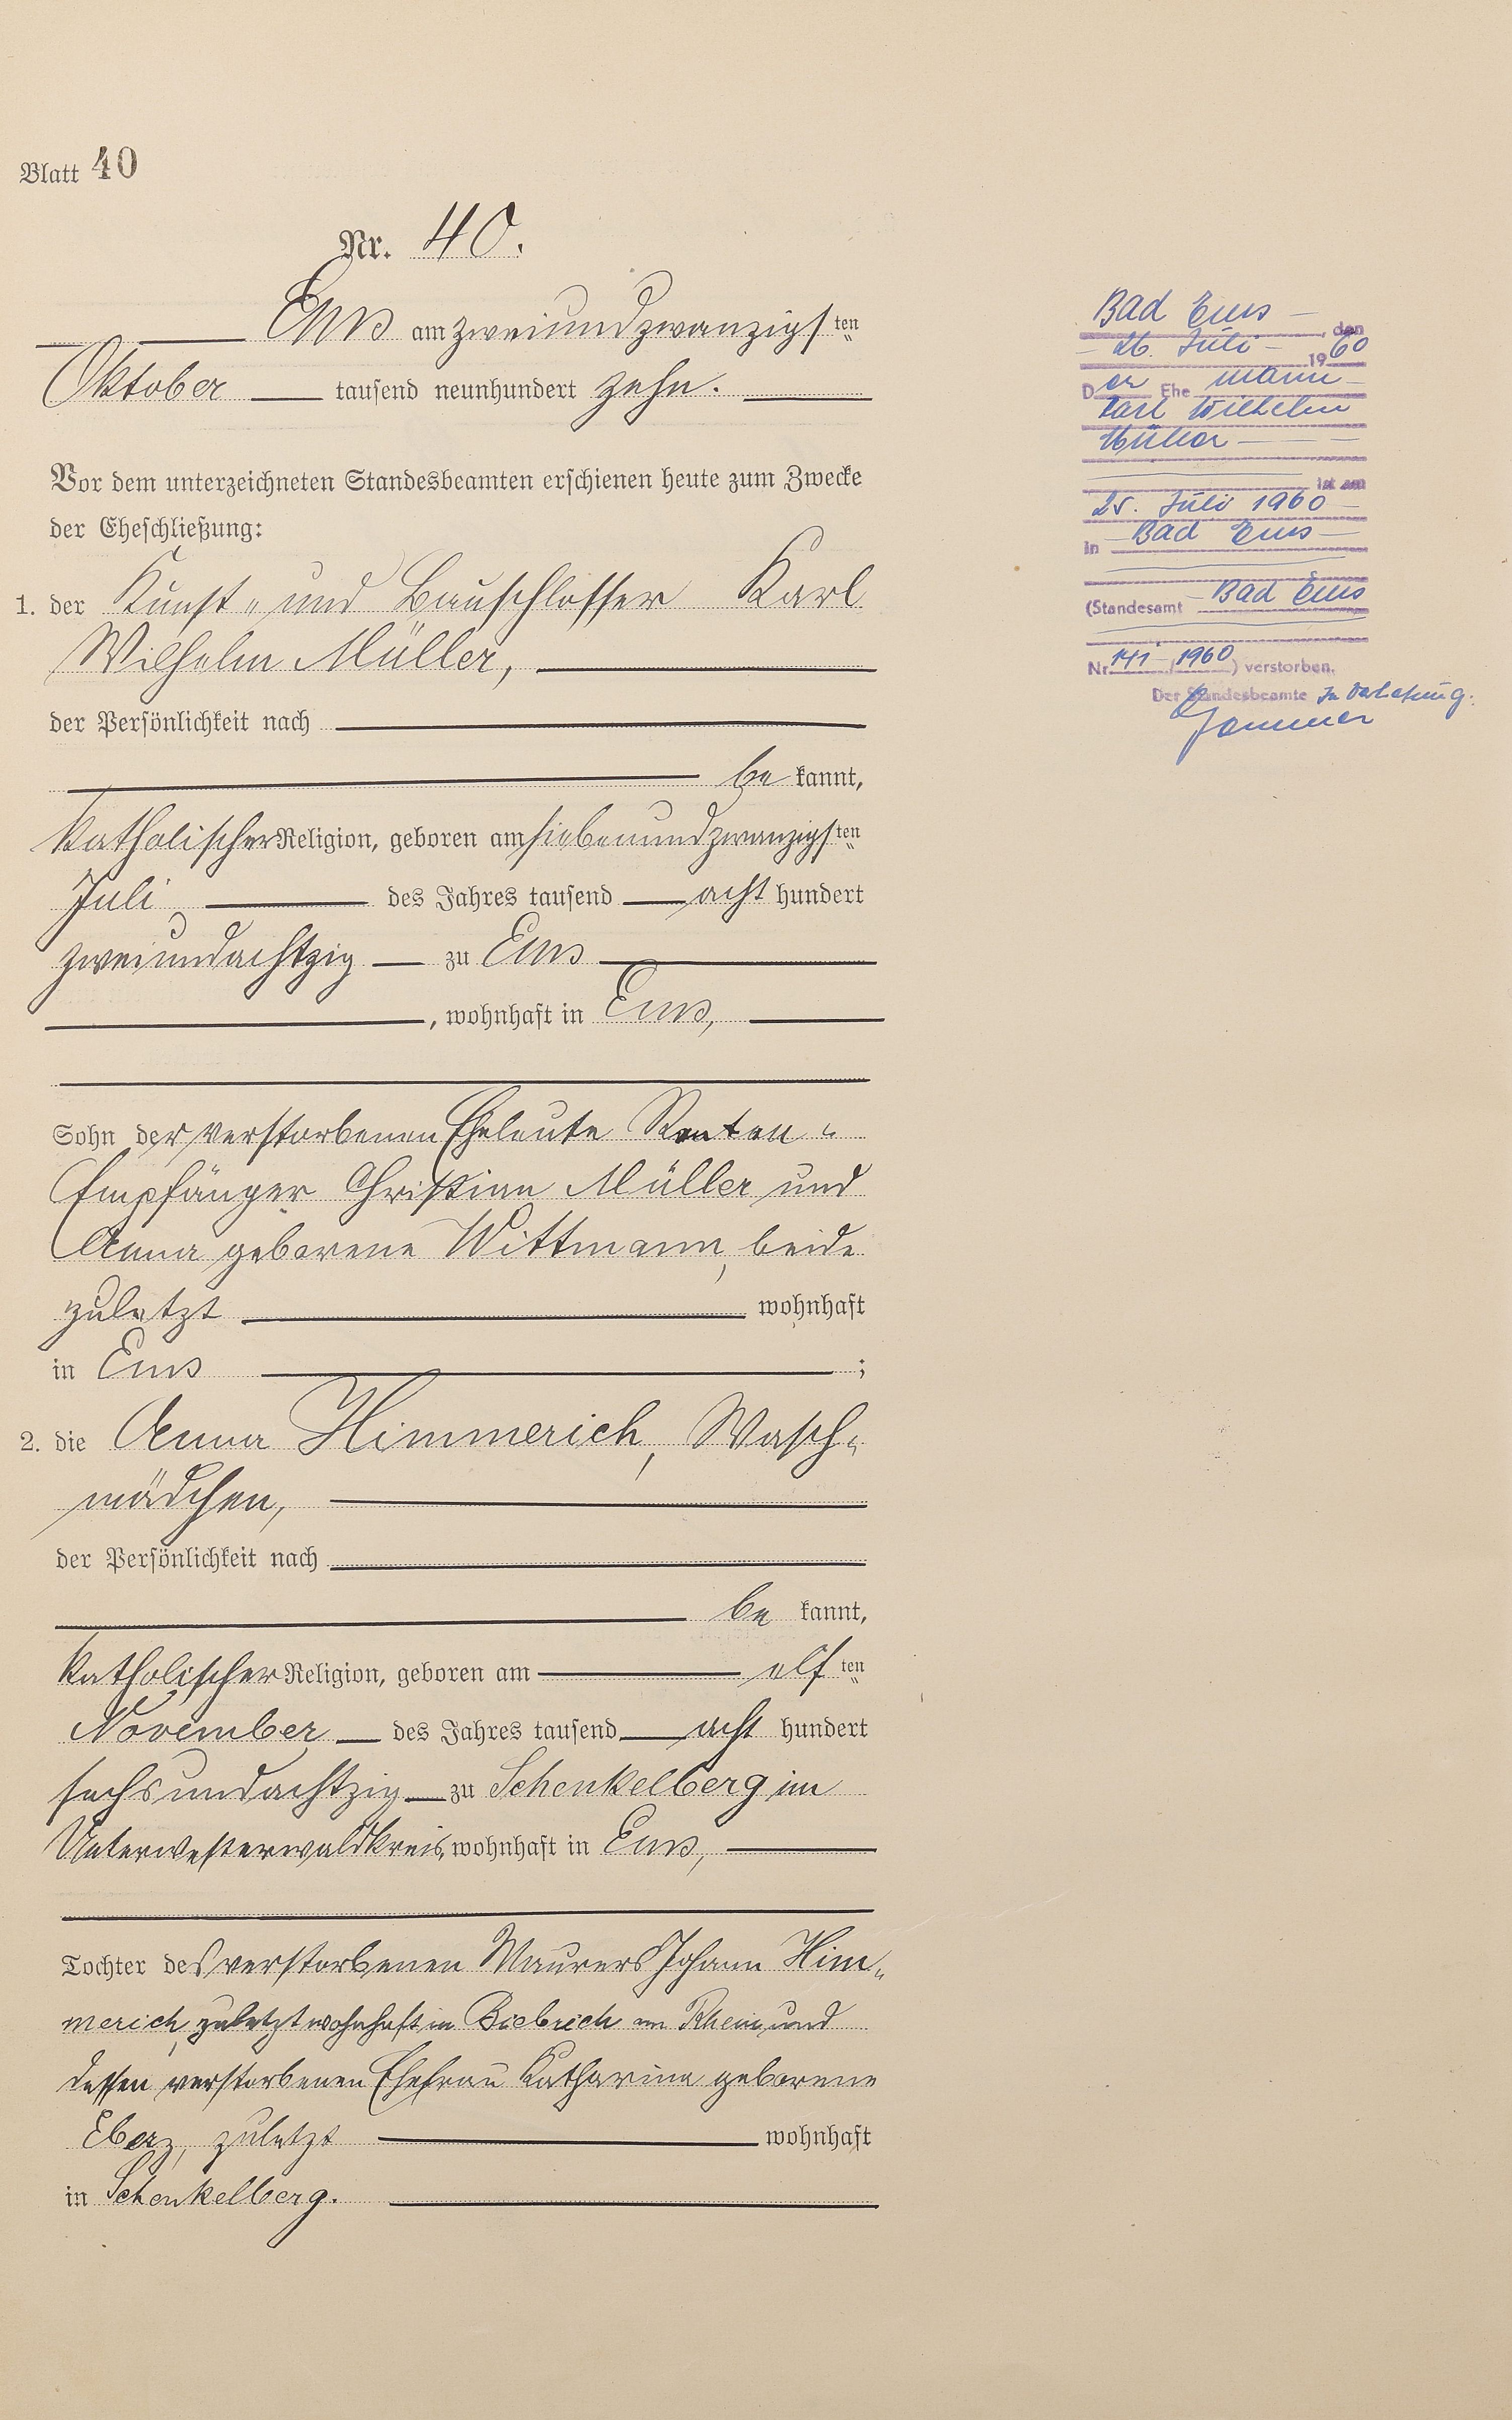 Blatt 40
Nr. 40.
Ems am zweiundzwanzigsten
Oktober tausend neunhundert zehn.
Vor dem unterzeichneten Standesbeamten erschienen heute zum Zwecke
der Eheschließung:
1. der Kunst- und Bauschlosser Karl
Wilhelm Müller,
der Persönlichkeit nach
bekannt,
katholischer Religion, geboren am siebenundzwanzigsten
Juli des Jahres tausend acht hundert
zweiundachtzig zu Ems
, wohnhaft in Ems,
Sohn der verstorbenen Eheleute Renten-
Empfänger Christian Müller und
Anna geborene Wittmann, beide
zuletzt wohnhaft
in Ems ;
2. die Anna Himmerich, Wasch-
mädchen,
der Persönlichkeit nach
bekannt,
katholischer Religion, geboren am elften
November des Jahres tausend acht hundert
sechsundachtzig zu Schenkelberg im
Unterwesterwaldkreis, wohnhaft in Ems,
Tochter des verstorbenen Maurers Johann Him-
merich, zuletzt wohnhaft in Biebrich am Rhein und
dessen verstorbenen Ehefrau Katharina geborene
Eberz, zuletzt wohnhaft
in Schenkelberg.
Bad Ems
, den
26. Juli 1960
Der Ehemann
Karl Wilhelm
Müller
ist am
25. Juli 1960
in Bad Ems
(Standesamt Bad Ems
Nr 141 / 1960) verstorben.
Der Standesbeamte In Vertretung: